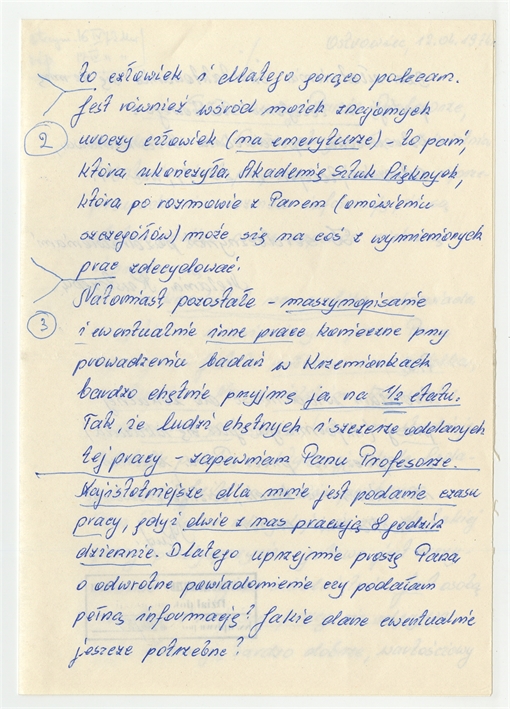 to człowiek i dlatego gorąco polecam.
Jest również wśród moich znajomych
2
uroczy człowiek (na emeryturze) - to pani,
która ukończyła Akademię Sztuk Pięknych,
która po rozmowie z Panem (omówieniu
szczegółów) może się na coś z wymienionych
prac zdecydować.
Natomiast pozostałe - maszynopisanie
3
i ewentualnie inne prace konieczne przy
prowadzeniu badań w Krzemionkach
bardzo chętnie przyjmę ja na 1/2 etatu.
Tak, że ludzi chętnych i szczerze oddanych
tej pracy - zapewniam Panu Profesorze.
Najistotniejsze dla mnie jest podanie czasu
pracy, gdyż dwie z nas pracują 8 godzin
dziennie. Dlatego uprzejmie proszę Pana
o odwrotne powiadomienie czy podałam
pełną informację? Jakie dane ewentualnie
jeszcze potrzebne?